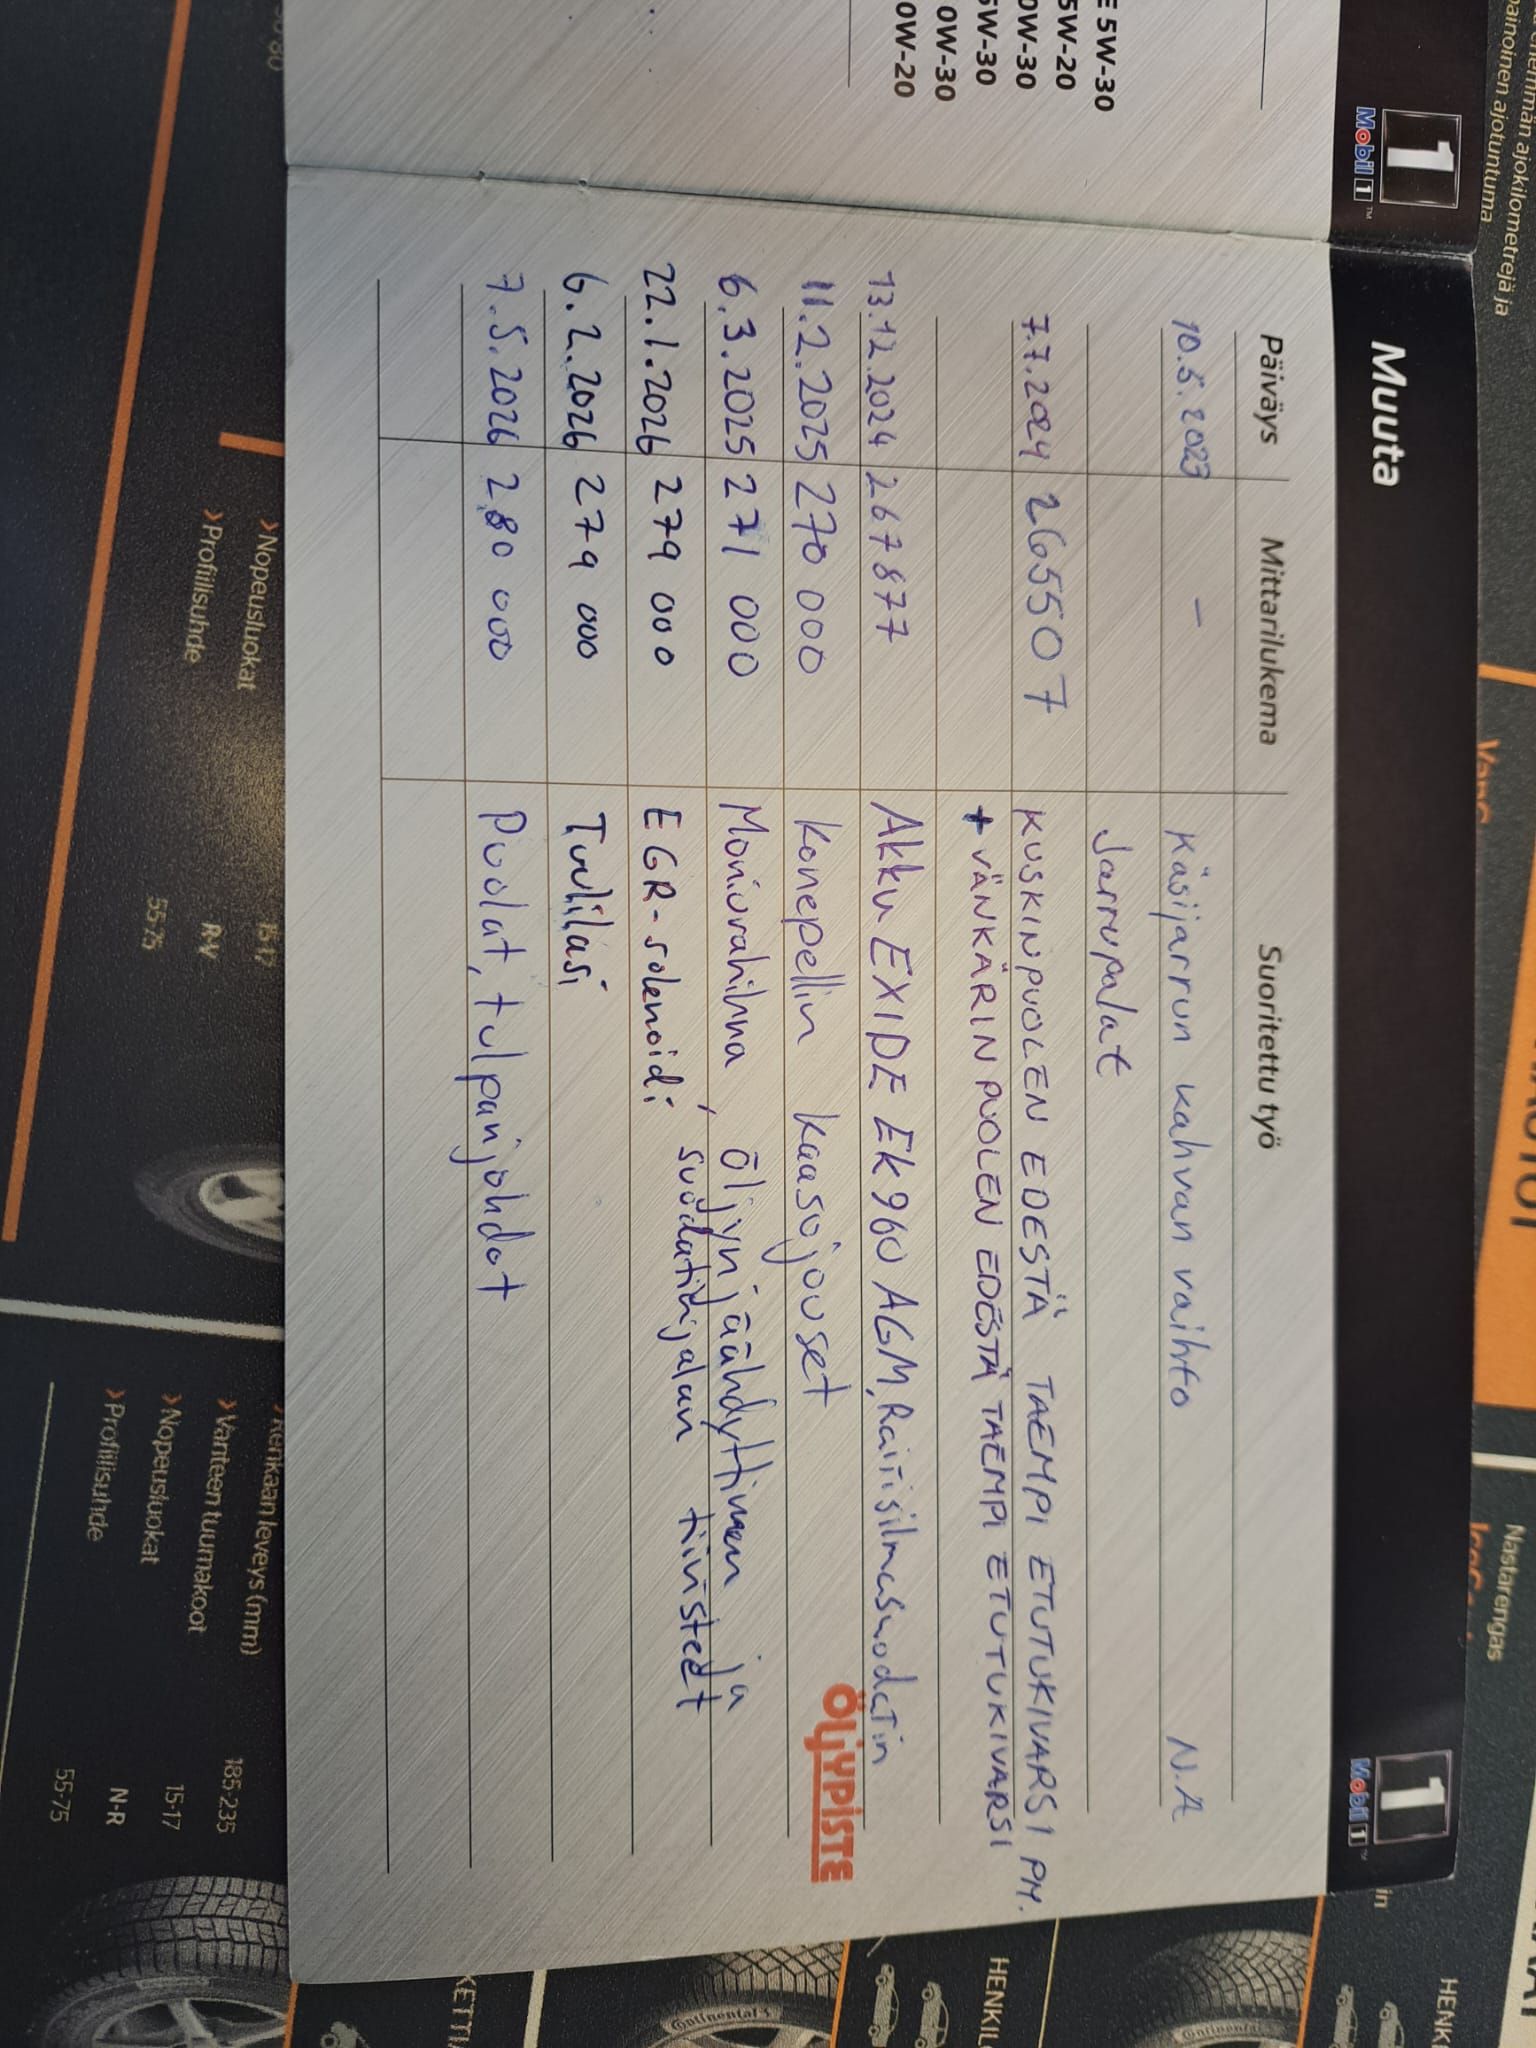 E 5W-30
5W-20
0W-30
5W-30
0W-30
0W-20
1
Mobil 1™
Muuta
1
Mobil 1™
Päiväys Mittarilukema Suoritettu työ
10.5.2023 - Käsijarrun kahvan vaihto N.A
Jarrupalat
7.7.2024 265507 KUSKINPUOLEN EDESTÄ TAEMPI ETUTUKIVARSI PM.
+ VÄNKÄRINPUOLEN EDESTÄ TAEMPI ETUTUKIVARSI
13.12.2024 267877 Akku EXIDE EK960 AGM, Raitisilmasuodatin
11.2.2025 270 000 Konepellin kaasujouset
ÖLJYPISTE
6.3.2025 271 000 Moniurahihna, Öljynjäähdyttimen ja
suodatinjalan tiivisteet
22.1.2026 279 000 EGR-solenoidi
6.2.2026 279 000 Tuulilasi
7.5.2026 280 000 Puolat, tulpanjohdot
ajokilometrejä ja
ajotuntuma
Nastarengas
HENKIL
›Nopeusluokat
›Profiilisuhde
15-17
R-V
55-75
Renkaan leveys (mm) 185-235
›Vanteen tuumakoot 15-17
›Nopeusluokat N-R
›Profiilisuhde 55-75
Continental
Continental